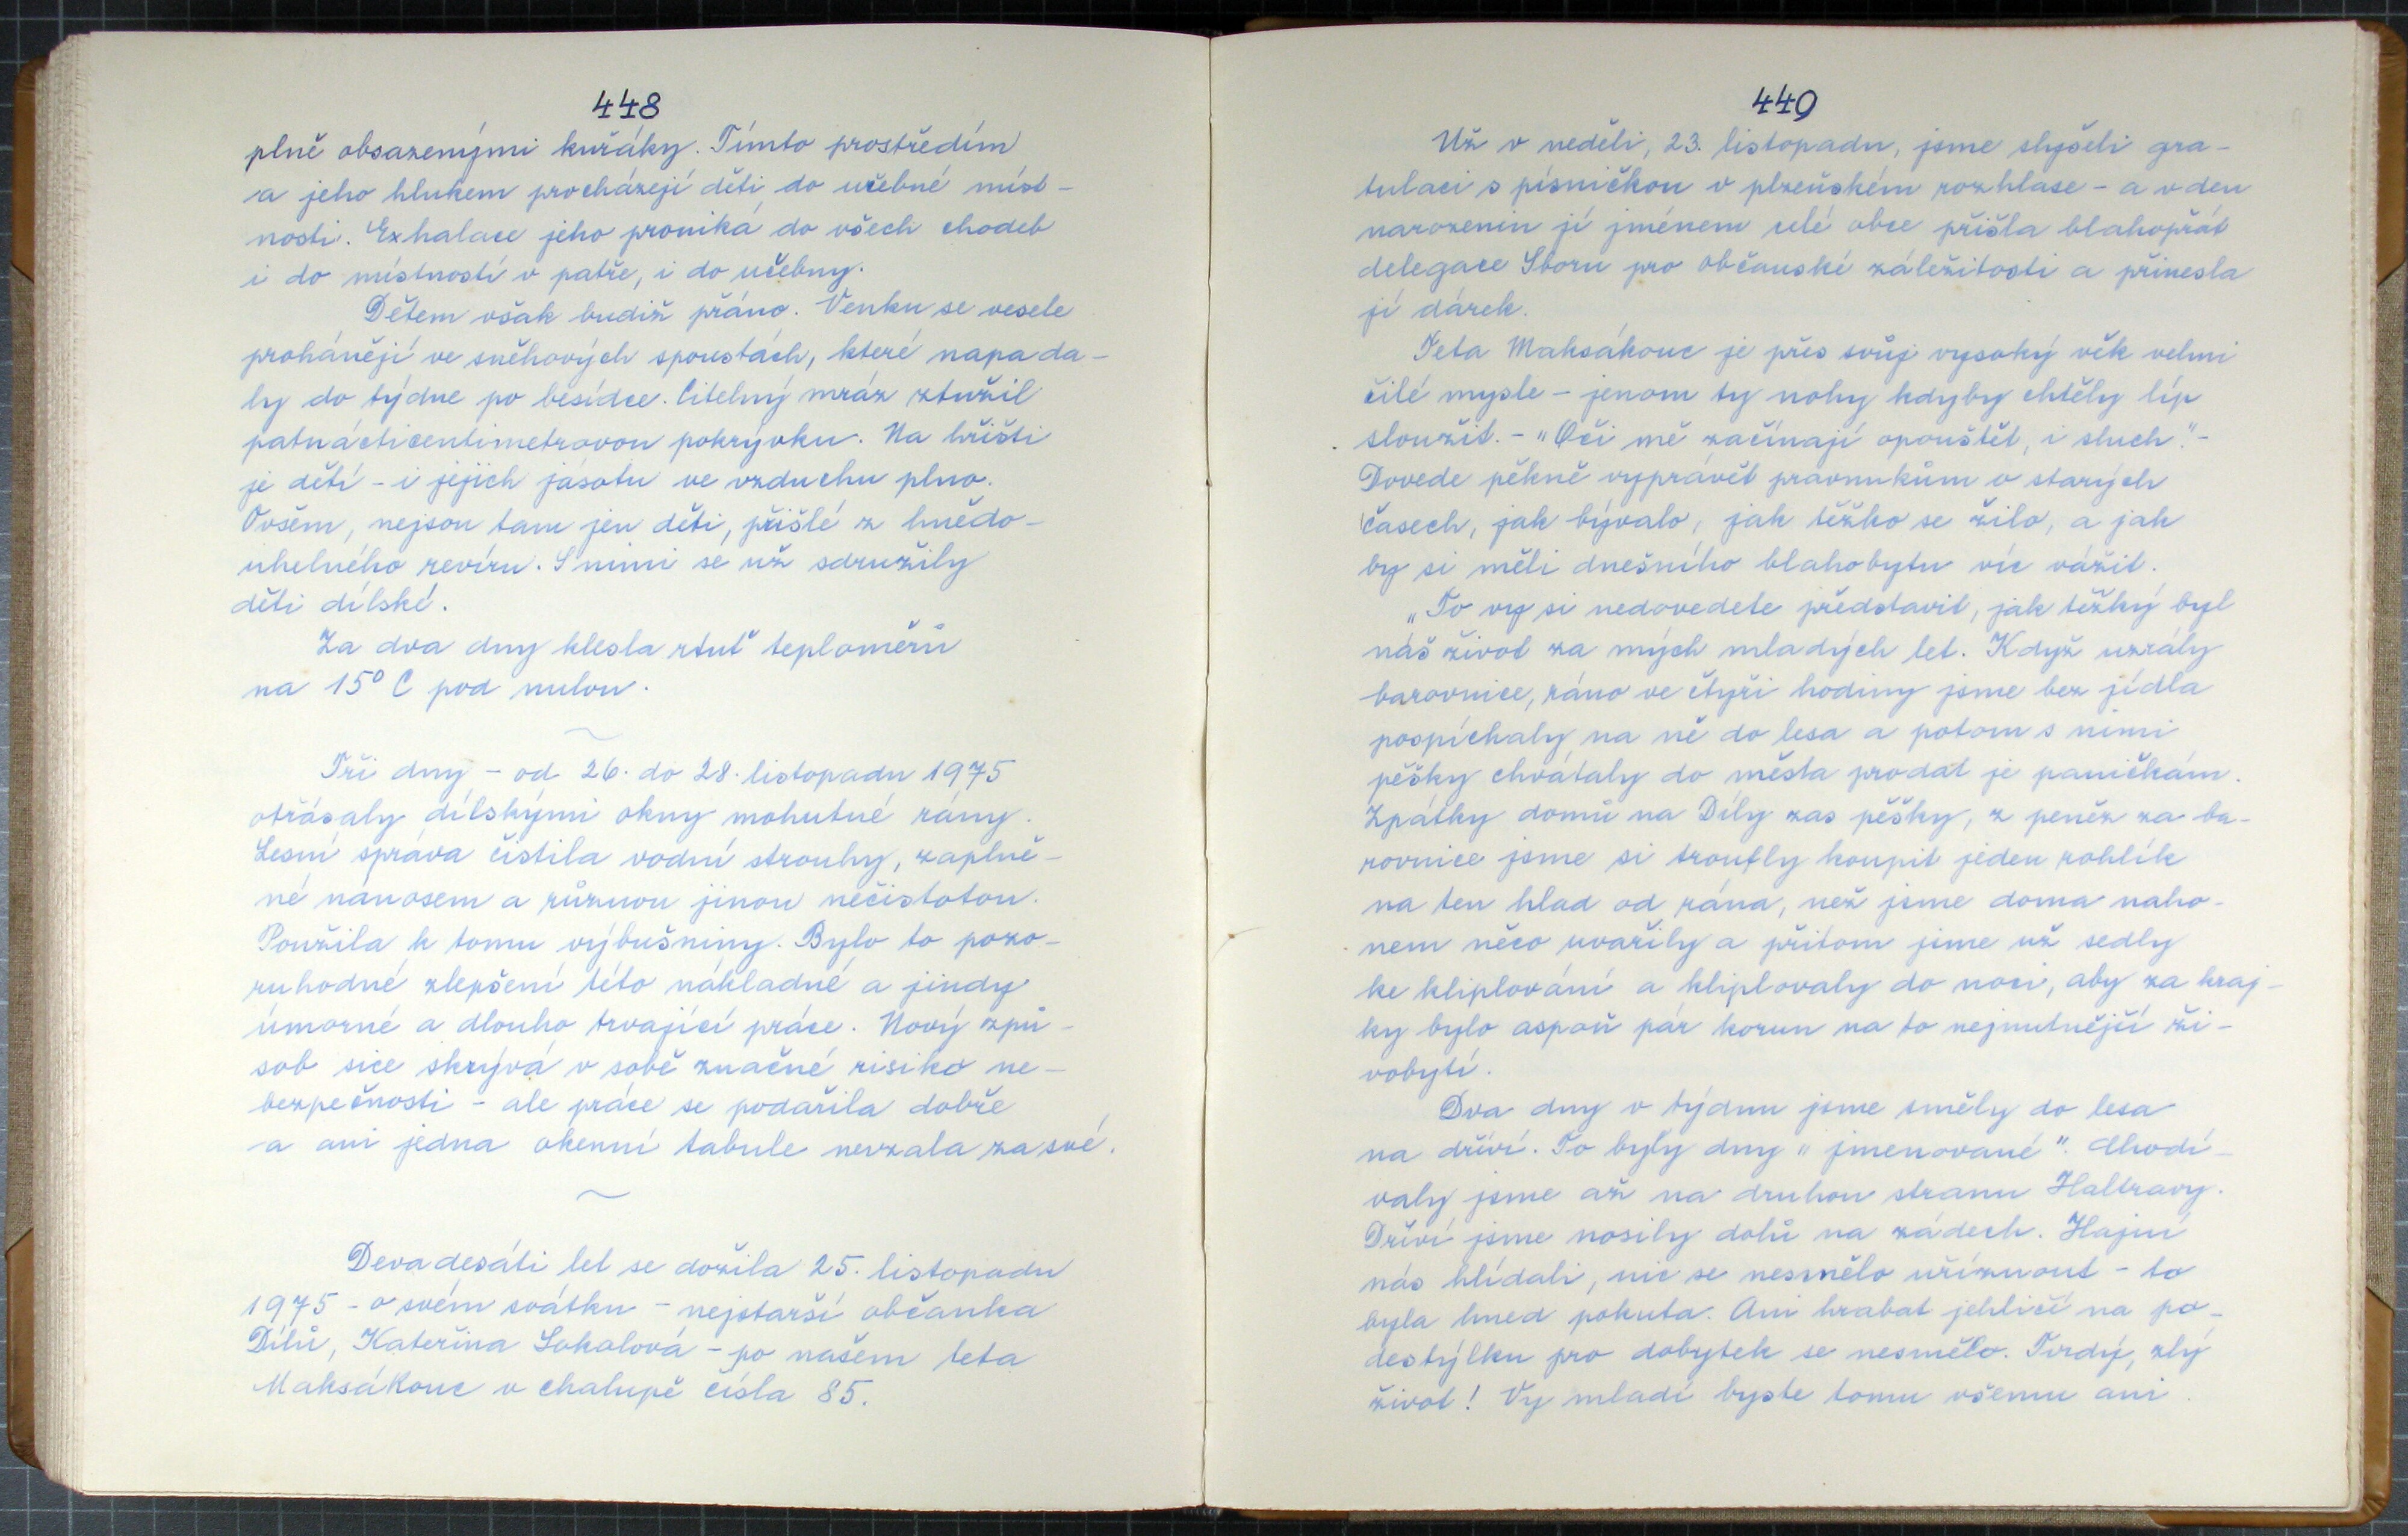 448
plně obsazenými kuřáky. Tímto prostředím
a jeho hlukem procházejí děti do učebné míst-
nosti. Exhalace jeho proniká do všech chodeb
i do místností v patře, i do učebny.
Dětem však budiž přáno. Venku se vesele
prohánějí ve sněhových spoustách, které napada-
ly do týdne po besídce. Citelný mráz ztužil
patnácticentimetrovou pokrývku. Na hřišti
je dětí - i jejich jásotu ve vzduchu plno.
Ovšem, nejsou tam jen děti, přišlé z hnědo-
uhelného revíru. S nimi se už sdružily
děti dílské.
Za dva dny klesla rtuť teploměrů
na 15° C pod nulou.
~
Tři dny - od 26. do 28. listopadu 1975
otřásaly dílskými okny mohutné rány.
Lesní správa čistila vodní strouhy, zaplně-
né nánosem a různou jinou nečistotou.
Použila k tomu výbušniny. Bylo to pozo-
ruhodné zlepšení této nákladné a jindy
úmorné a dlouho trvající práce. Nový způ-
sob sice skrývá v sobě značné risiko ne-
bezpečnosti - ale práce se podařila dobře
a ani jedna okenní tabule nevzala za své.
~
Devadesáti let se dožila 25. listopadu
1975 - o svém svátku - nejstarší občanka
Dílů, Kateřina Sokolová - po našem teta
Maksákouc v chalupě čísla 85.
449
Už v neděli, 23. listopadu, jsme slyšeli gra-
tulaci s písničkou v plzeňském rozhlase - a v den
narozenin jí jménem celé obce přišla blahopřát
delegace Sboru pro občanské záležitosti a přinesla
jí dárek.
Teta Maksákouc je přes svůj vysoký věk velmi
čilé mysle - jenom ty nohy kdyby chtěly líp
sloužit. - "Oči mě začínají opouštět, i sluch." -
Dovede pěkně vyprávět pravnukům o starých
časech, jak bývalo, jak těžko se žilo, a jak
by si měli dnešního blahobytu víc vážit.
„To vy si nedovedete představit, jak těžký byl
náš život za mých mladých let. Když uzrály
barovnice, ráno ve čtyři hodiny jsme bez jídla
pospíchaly na ně do lesa a potom s nimi
pěšky chvátaly do města prodat je paničkám.
Zpátky domů na Díly zas pěšky, z peněz za ba-
rovnice jsme si troufly koupit jeden rohlík
na ten hlad od rána, než jsme doma naho-
nem něco uvařily a přitom jsme už sedly
ke kliplování a kliplovaly do noci, aby za kraj-
ky bylo aspoň pár korun na to nejnutnější ži-
vobytí.
Dva dny v týdnu jsme směly do lesa
na dříví. To byly dny "jmenované". Chodí-
valy jsme až na druhou stranu Haltravy.
Dříví jsme nosily dolů na zádech. Hajní
nás hlídali, nic se nesmělo uříznout - to
byla hned pokuta. Ani hrabat jehličí na po-
destýlku pro dobytek se nesmělo. Tvrdý, zlý
život! Vy mladí byste tomu všemu ani